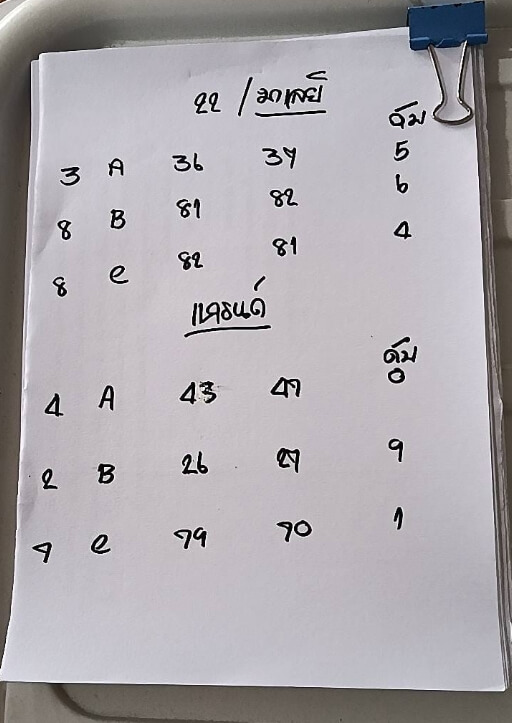 22 / มาเลย์
ดับ
3 A 36 37 5
8 B 81 82 6
8 C 82 81 4
แกรนด์
ดับ
4 A 43 47 0
2 B 26 27 9
7 C 79 70 1